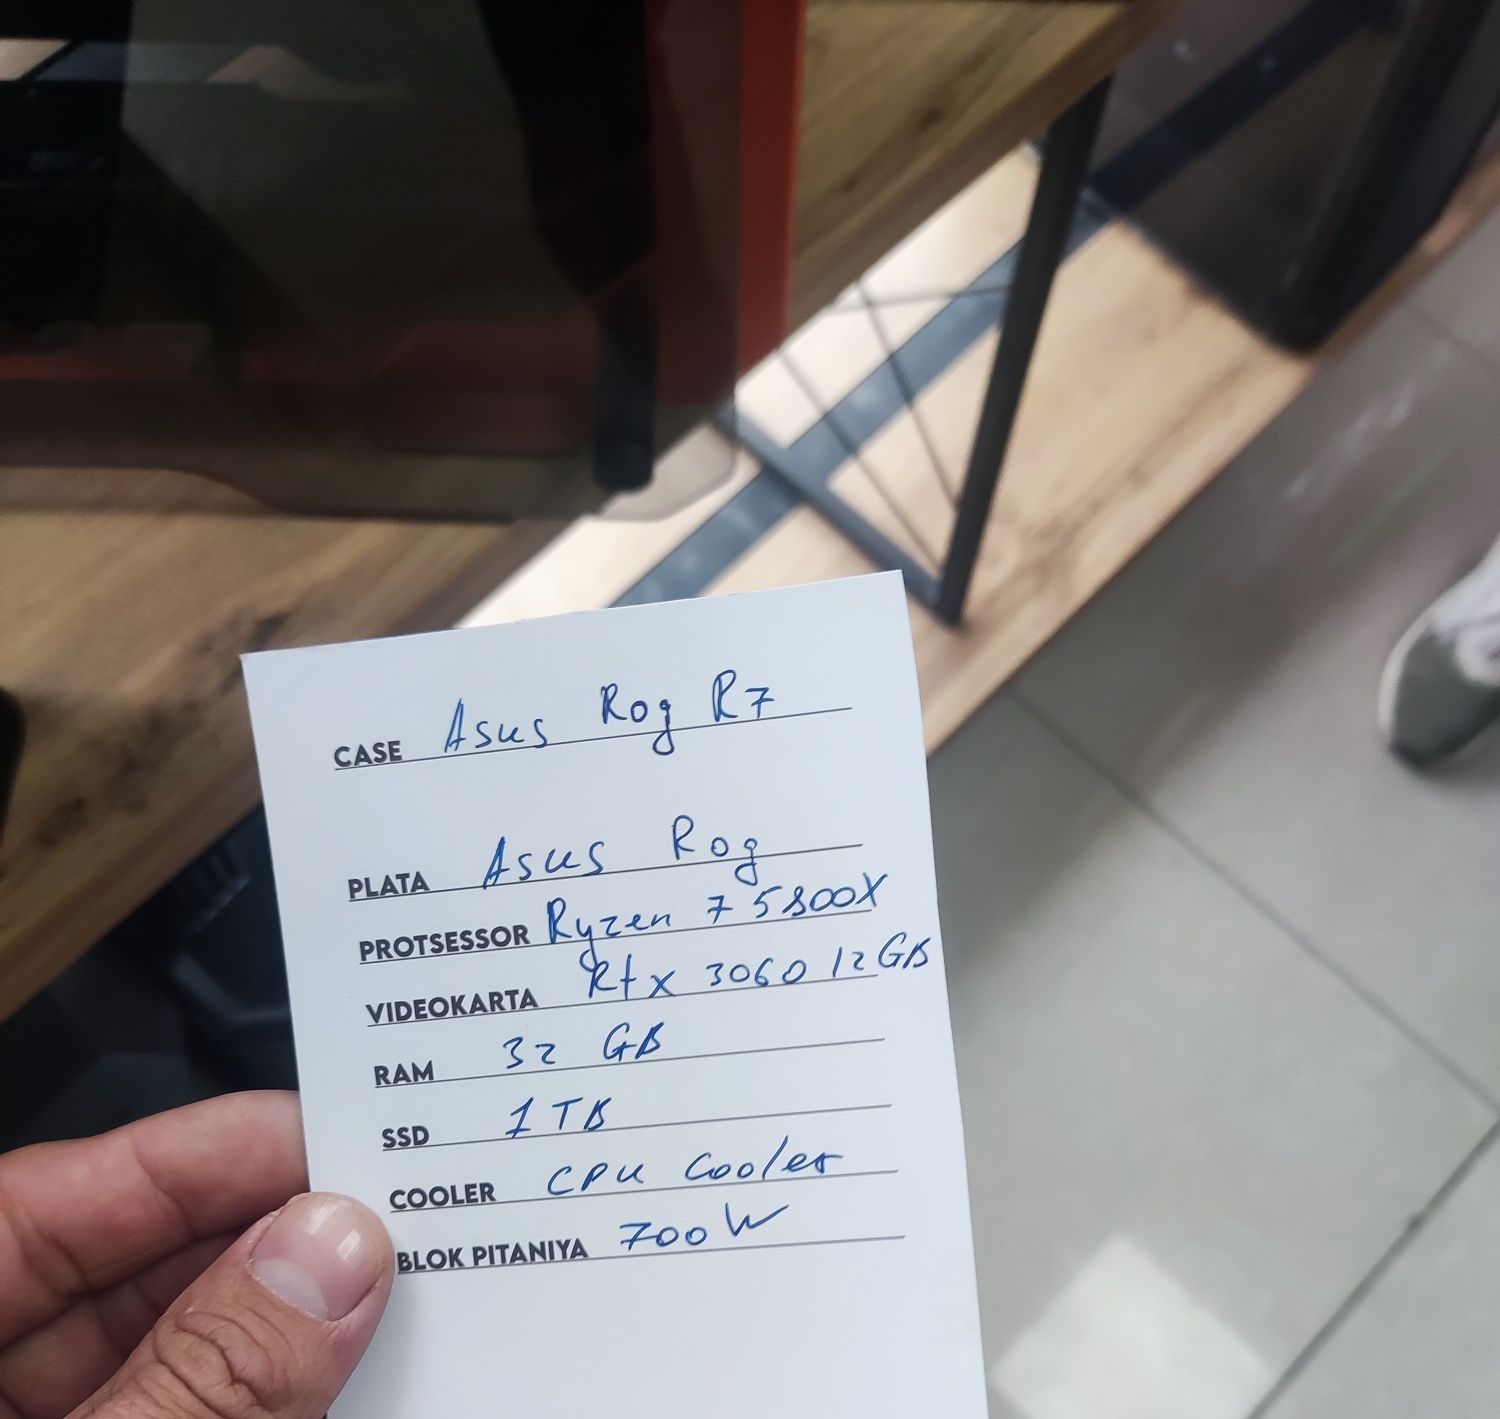 CASE Asus Rog R7
PLATA Asus Rog
PROTSESSOR Ryzen 7 5800X
VIDEOKARTA Rtx 3060 12GB
RAM 32 GB
SSD 1TB
COOLER CPU Cooler
BLOK PITANIYA 700W